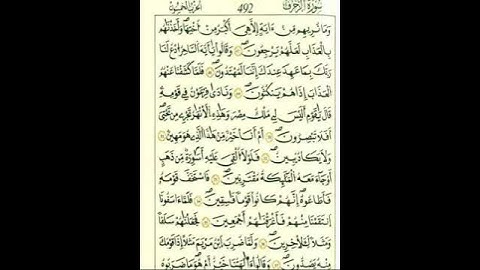 سُورَةُ الزُّخْرُفِ 492
وَمَا نُرِيهِم مِّنْ ءَايَةٍ إِلَّا هِيَ أَكْبَرُ مِنْ أُخْتِهَا وَأَخَذْنَٰهُم
بِالْعَذَابِ لَعَلَّهُمْ يَرْجِعُونَ وَقَالُوا يَٰأَيُّهَ السَّاحِرُ ادْعُ لَنَا
رَبَّكَ بِمَا عَهِدَ عِندَكَ إِنَّنَا لَمُهْتَدُونَ فَلَمَّا كَشَفْنَا عَنْهُمُ
الْعَذَابَ إِذَا هُمْ يَنكُثُونَ وَنَادَىٰ فِرْعَوْنُ فِي قَوْمِهِ
قَالَ يَٰقَوْمِ أَلَيْسَ لِي مُلْكُ مِصْرَ وَهَٰذِهِ الْأَنْهَٰرُ تَجْرِي مِن تَحْتِي
أَفَلَا تُبْصِرُونَ أَمْ أَنَا خَيْرٌ مِّنْ هَٰذَا الَّذِي هُوَ مَهِينٌ
وَلَا يَكَادُ يُبِينُ فَلَوْلَا أُلْقِيَ عَلَيْهِ أَسْوِرَةٌ مِّن ذَهَبٍ
أَوْ جَاءَ مَعَهُ الْمَلَٰئِكَةُ مُقْتَرِنِينَ فَاسْتَخَفَّ قَوْمَهُ
فَأَطَاعُوهُ إِنَّهُمْ كَانُوا قَوْمًا فَٰسِقِينَ فَلَمَّا ءَاسَفُونَا
انتَقَمْنَا مِنْهُمْ فَأَغْرَقْنَٰهُمْ أَجْمَعِينَ فَجَعَلْنَٰهُمْ سَلَفًا
وَمَثَلًا لِّلْءَاخِرِينَ وَلَمَّا ضُرِبَ ابْنُ مَرْيَمَ مَثَلًا إِذَا قَوْمُكَ
مِنْهُ يَصِدُّونَ وَقَالُوا ءَأَٰلِهَتُنَا خَيْرٌ أَمْ هُوَ مَا ضَرَبُوهُ